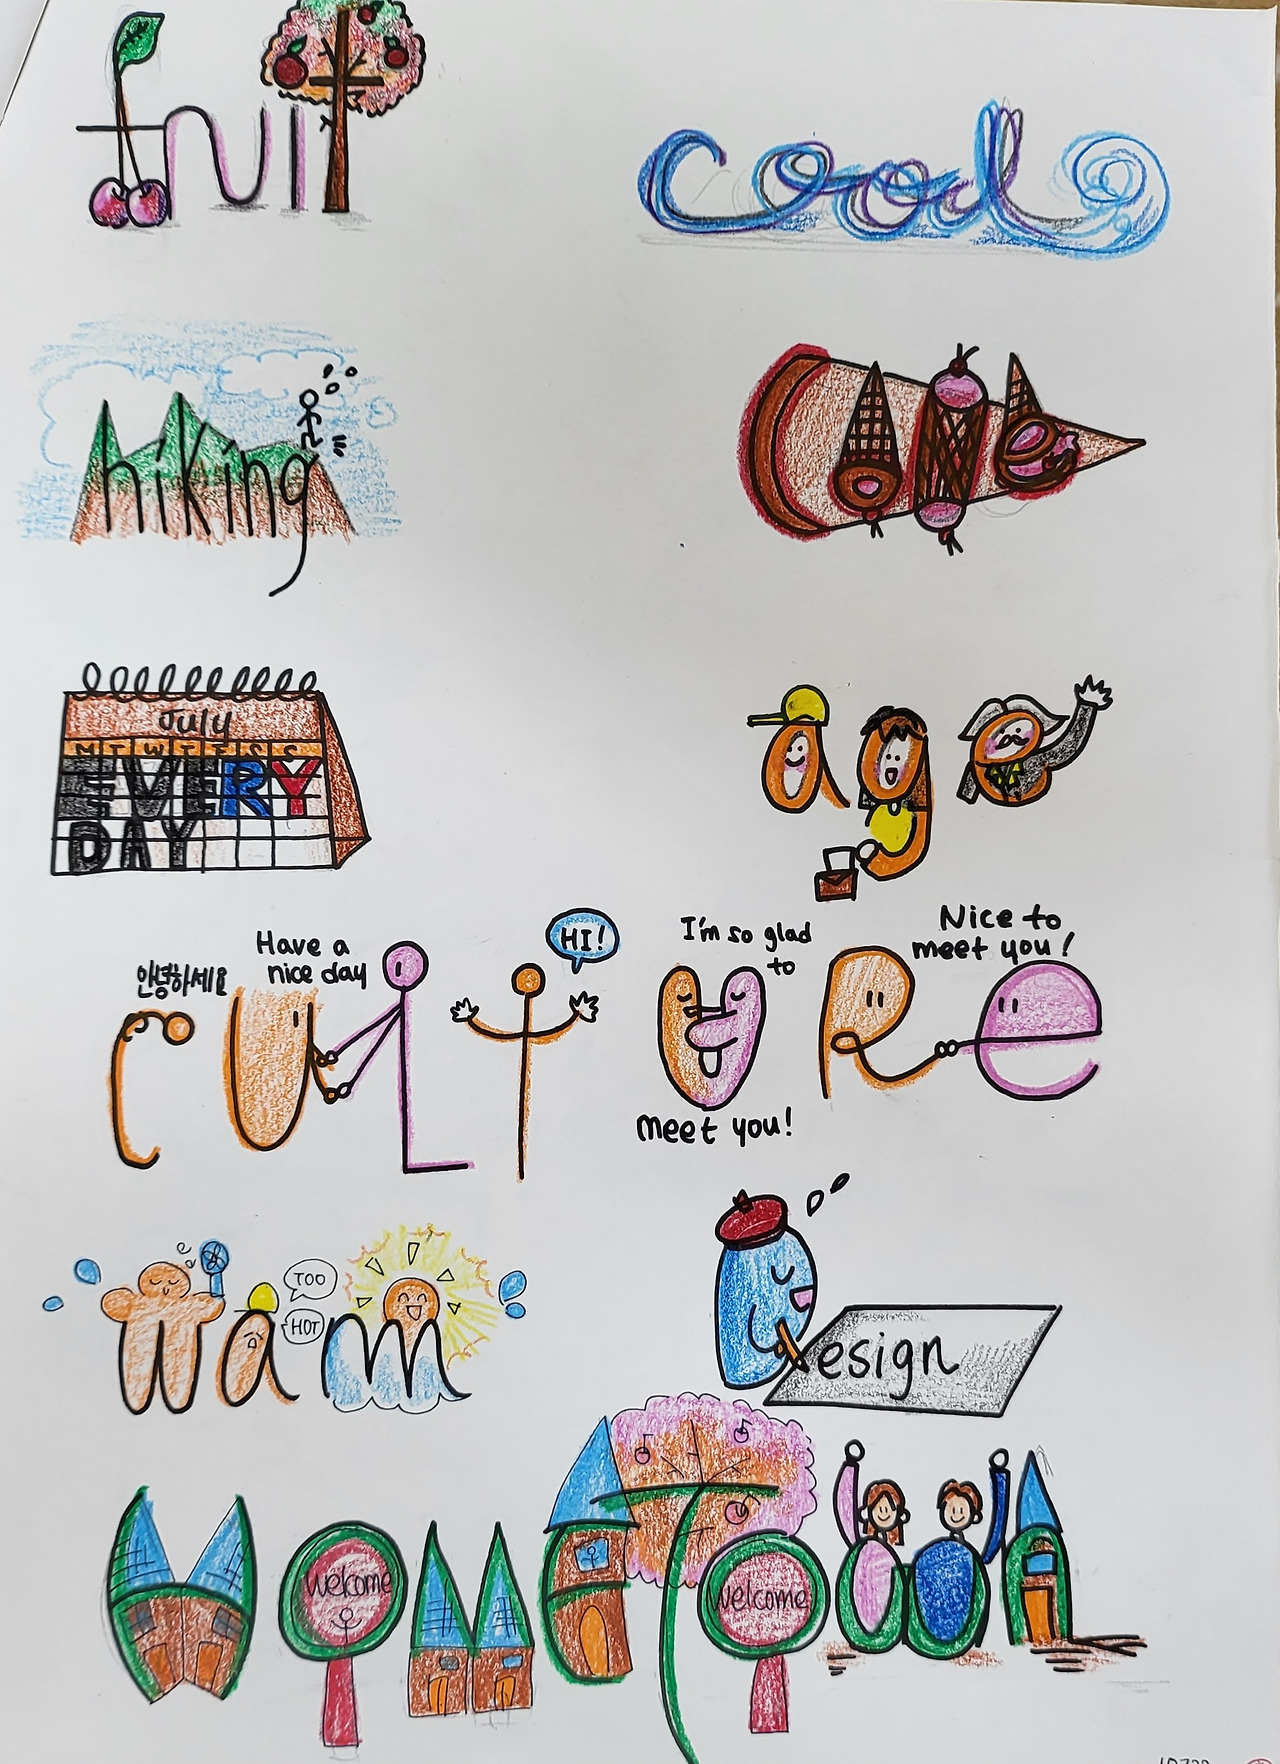 fruit
cool
hiking
July
M T W T F S S
EVERY
DAY
age
안녕하세요
Have a
nice day
HI!
I'm so glad
to
meet you!
Nice to
meet you!
CULTURe
TOO
HOT
wam
Design
HOMETOWN
welcome
welcome